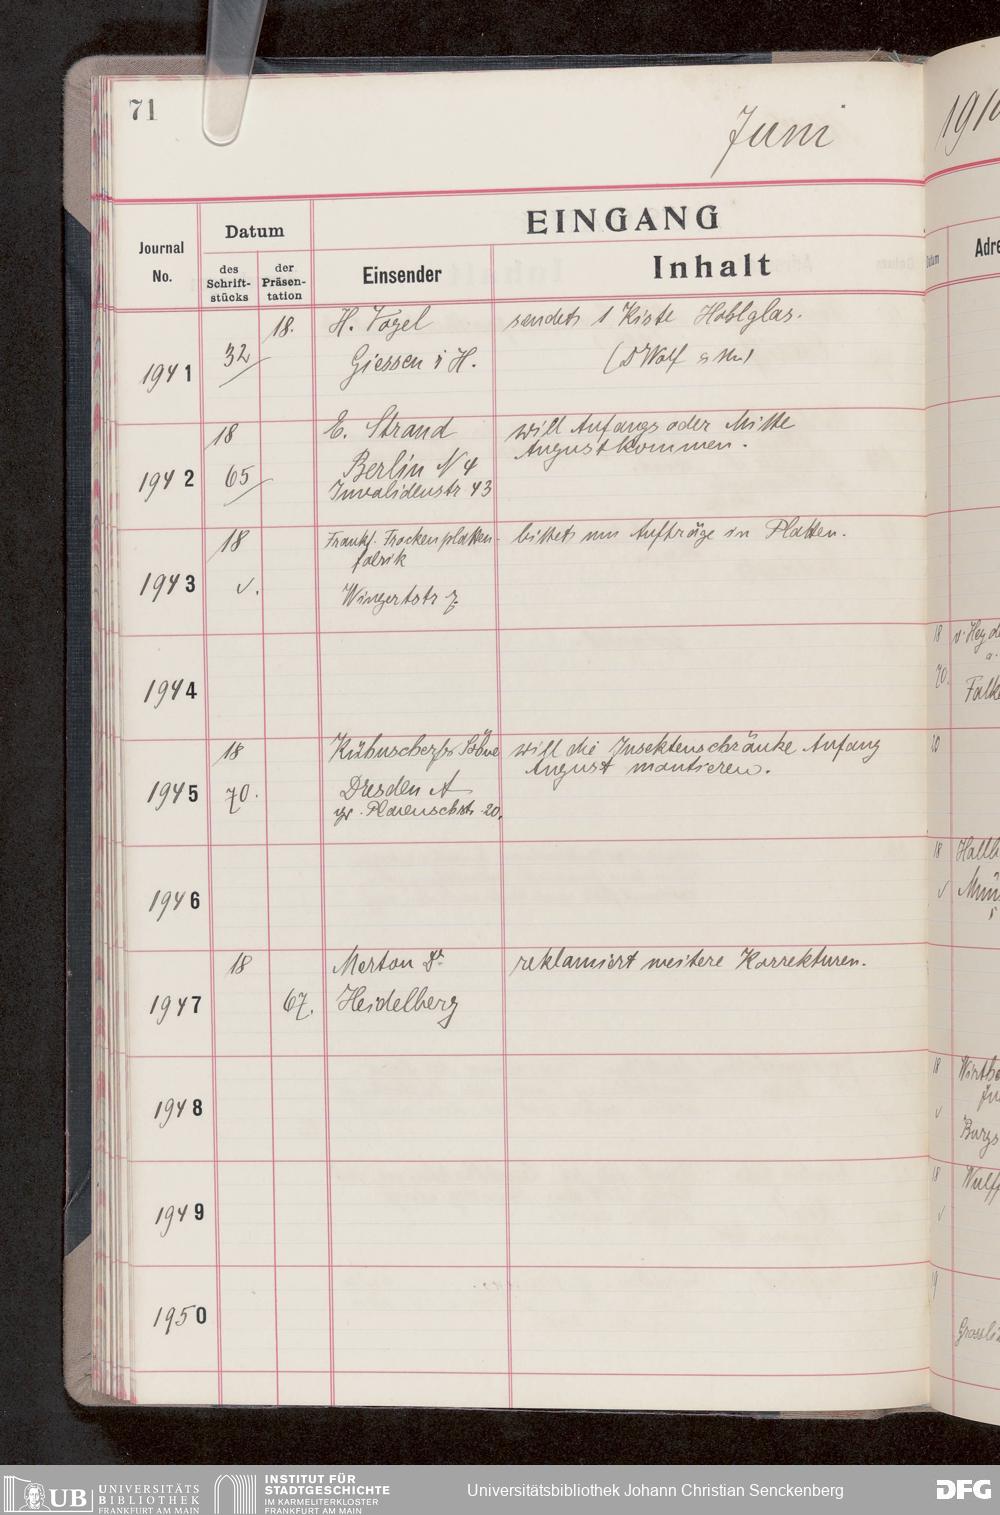 71
Juni
Journal No.
Datum
des Schrift-stücks
der Präsen-tation
EINGANG
Einsender
Inhalt
1941
32
18.
H. Vogel
Giessen i H.
sendet 1 Kiste Hohlglas.
(Dr Wolf
1942
18
65
E. Strand
Berlin N 4
Invalidenstr 43
will Anfangs oder Mitte
August kommen.
1943
18
v.
Frankf. Trockenplatten-
fabrik
Wingertstr 7
bittet um Aufträge in Platten.
1944
1945
18
70.
Kühnscherfs Söhne
Dresden A
gr. Plauenschstr 20.
will die Insektenschränke Anfang
August montieren.
1946
1947
18
67.
Merton Dr
Heidelberg
reklamiert weitere Korrekturen.
1948
1949
1950
191
Datum
Adre
18
70.
v. Heyd
Falk
20
18
v
Hallb
Mün
i
18
v
Winth
Burgs
18
v
Wulff
19
UB UNIVERSITÄTS
BIBLIOTHEK
FRANKFURT AM MAIN
INSTITUT FÜR
STADTGESCHICHTE
IM KARMELITERKLOSTER
FRANKFURT AM MAIN
Universitätsbibliothek Johann Christian Senckenberg
DFG